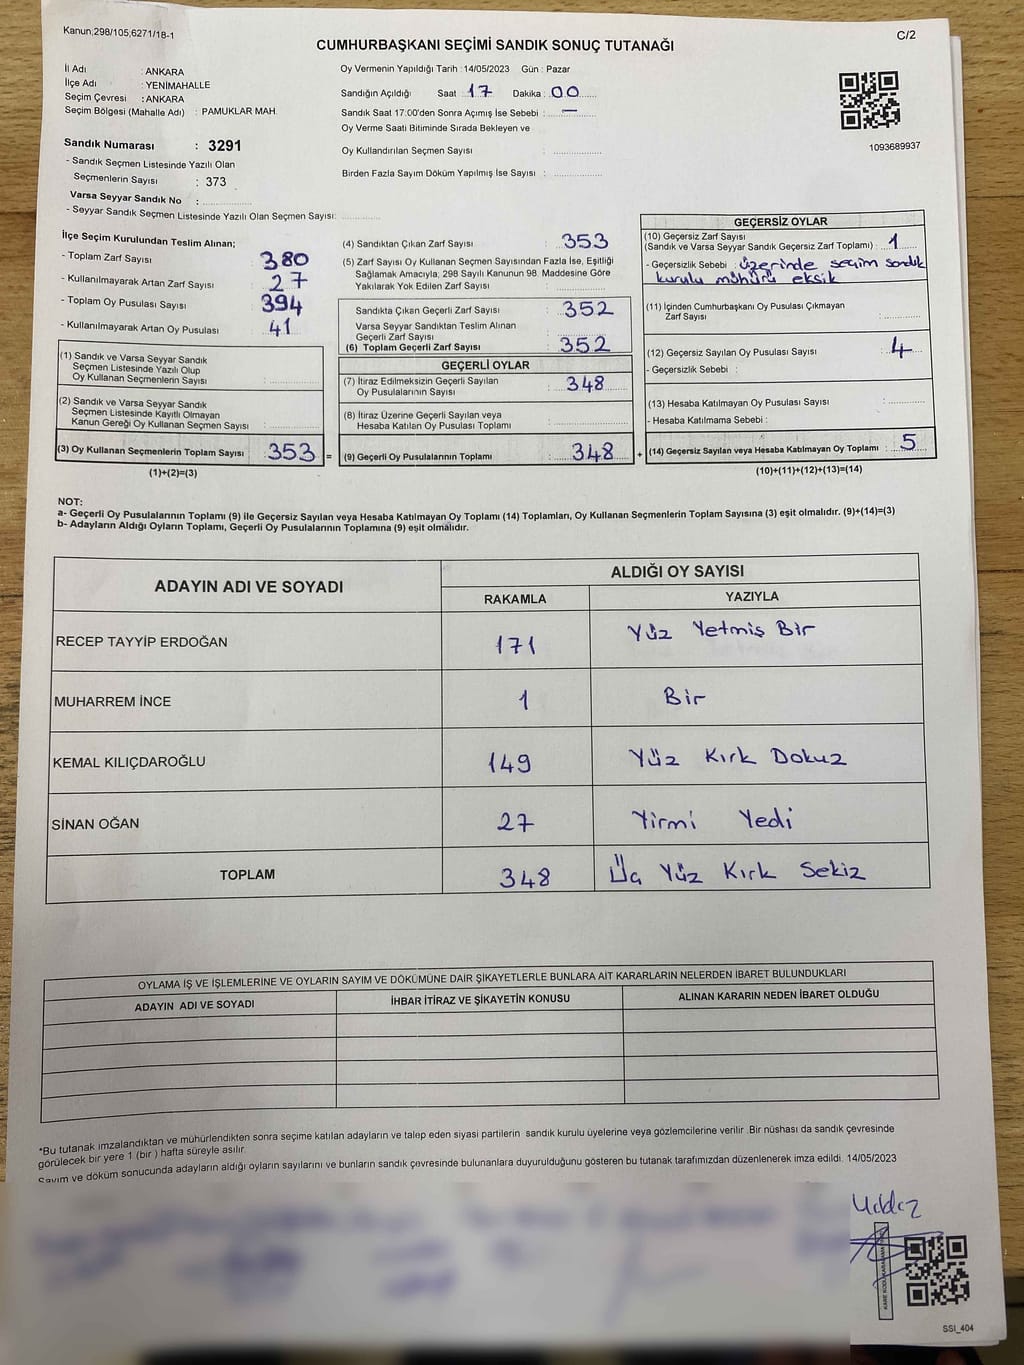 Kanun;298/105,6271/18-1
C/2
CUMHURBAŞKANI SEÇİMİ SANDIK SONUÇ TUTANAĞI
İl Adı : ANKARA
İlçe Adı : YENİMAHALLE
Seçim Çevresi : ANKARA
Seçim Bölgesi (Mahalle Adı) : PAMUKLAR MAH.
Oy Vermenin Yapıldığı Tarih : 14/05/2023 Gün : Pazar
Sandığın Açıldığı Saat 17 Dakika : 00
Sandık Saat 17:00'den Sonra Açımış İse Sebebi : —
Oy Verme Saati Bitiminde Sırada Bekleyen ve
Oy Kullandırılan Seçmen Sayısı :
Birden Fazla Sayım Döküm Yapılmış İse Sayısı :
1093689937
Sandık Numarası : 3291
- Sandık Seçmen Listesinde Yazılı Olan
Seçmenlerin Sayısı : 373
Varsa Seyyar Sandık No :
- Seyyar Sandık Seçmen Listesinde Yazılı Olan Seçmen Sayısı:
İlçe Seçim Kurulundan Teslim Alınan;
- Toplam Zarf Sayısı : 380
- Kullanılmayarak Artan Zarf Sayısı : 27
- Toplam Oy Pusulası Sayısı : 394
- Kullanılmayarak Artan Oy Pusulası : 41
(1) Sandık ve Varsa Seyyar Sandık
Seçmen Listesinde Yazılı Olup
Oy Kullanan Seçmenlerin Sayısı :
(2) Sandık ve Varsa Seyyar Sandık
Seçmen Listesinde Kayıtlı Olmayan
Kanun Gereği Oy Kullanan Seçmen Sayısı :
(3) Oy Kullanan Seçmenlerin Toplam Sayısı : 353 =
(1)+(2)=(3)
(4) Sandıktan Çıkan Zarf Sayısı : 353
(5) Zarf Sayısı Oy Kullanan Seçmen Sayısından Fazla İse, Eşitliği
Sağlamak Amacıyla, 298 Sayılı Kanunun 98. Maddesine Göre
Yakılarak Yok Edilen Zarf Sayısı :
Sandıkta Çıkan Geçerli Zarf Sayısı : 352
Varsa Seyyar Sandıktan Teslim Alınan
Geçerli Zarf Sayısı :
(6) Toplam Geçerli Zarf Sayısı : 352
GEÇERLİ OYLAR
(7) İtiraz Edilmeksizin Geçerli Sayılan
Oy Pusulalarının Sayısı : 348
(8) İtiraz Üzerine Geçerli Sayılan veya
Hesaba Katılan Oy Pusulası Toplamı :
(9) Geçerli Oy Pusulalarının Toplamı : 348 +
GEÇERSİZ OYLAR
(10) Geçersiz Zarf Sayısı
(Sandık ve Varsa Seyyar Sandık Geçersiz Zarf Toplamı) : 1
- Geçersizlik Sebebi : üzerinde seçim sandık
kurulu mühürü eksik
(11) İçinden Cumhurbaşkanı Oy Pusulası Çıkmayan
Zarf Sayısı :
(12) Geçersiz Sayılan Oy Pusulası Sayısı : 4
- Geçersizlik Sebebi :
(13) Hesaba Katılmayan Oy Pusulası Sayısı :
- Hesaba Katılmama Sebebi :
(14) Geçersiz Sayılan veya Hesaba Katılmayan Oy Toplamı : 5
(10)+(11)+(12)+(13)=(14)
NOT:
a- Geçerli Oy Pusulalarının Toplamı (9) ile Geçersiz Sayılan veya Hesaba Katılmayan Oy Toplamı (14) Toplamları, Oy Kullanan Seçmenlerin Toplam Sayısına (3) eşit olmalıdır. (9)+(14)=(3)
b- Adayların Aldığı Oyların Toplamı, Geçerli Oy Pusulalarının Toplamına (9) eşit olmalıdır.
ADAYIN ADI VE SOYADI
ALDIĞI OY SAYISI
RAKAMLA YAZIYLA
RECEP TAYYİP ERDOĞAN 171 Yüz Yetmiş Bir
MUHARREM İNCE 1 Bir
KEMAL KILIÇDAROĞLU 149 Yüz Kırk Dokuz
SİNAN OĞAN 27 Yirmi Yedi
TOPLAM 348 Üç Yüz Kırk Sekiz
OYLAMA İŞ VE İŞLEMLERİNE VE OYLARIN SAYIM VE DÖKÜMÜNE DAİR ŞİKAYETLERLE BUNLARA AİT KARARLARIN NELERDEN İBARET BULUNDUKLARI
ADAYIN ADI VE SOYADI İHBAR İTİRAZ VE ŞİKAYETİN KONUSU ALINAN KARARIN NEDEN İBARET OLDUĞU
*Bu tutanak imzalandıktan ve mühürlendikten sonra seçime katılan adayların ve talep eden siyasi partilerin sandık kurulu üyelerine veya gözlemcilerine verilir .Bir nüshası da sandık çevresinde
görülecek bir yere 1 (bir ) hafta süreyle asılır.
Sayım ve döküm sonucunda adayların aldığı oyların sayılarını ve bunların sandık çevresinde bulunanlara duyurulduğunu gösteren bu tutanak tarafımızdan düzenlenerek imza edildi. 14/05/2023
SSI_404